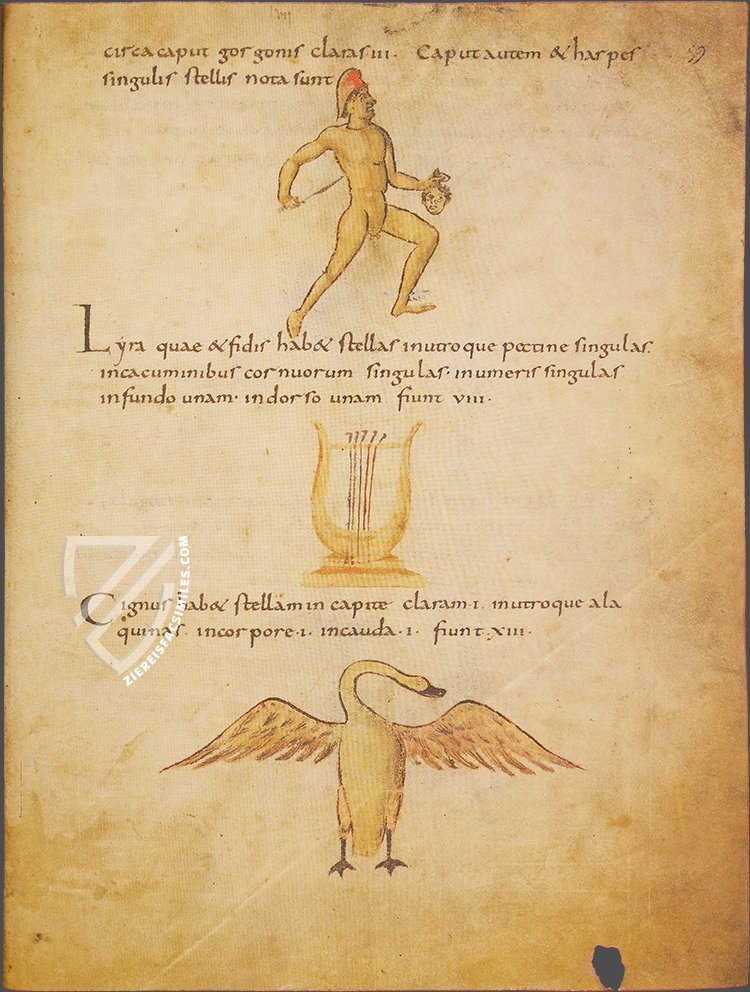 circa caput gorgonis claras·iii·  Caput autem & harpes
59
singulis stellis nota sunt
Lyra quae & fidis hab& stellas inutroque pectine singulas.
incacuminibus cornuorum singulas· inumeris singulas
infundo unam· indorso unam fiunt viii·
Cignus hab& stellam in capite claram·i· inutroque ala
quinas· incorpore·i· incauda·i· fiunt·xiii·
ZIEREISFACSIMILES.COM